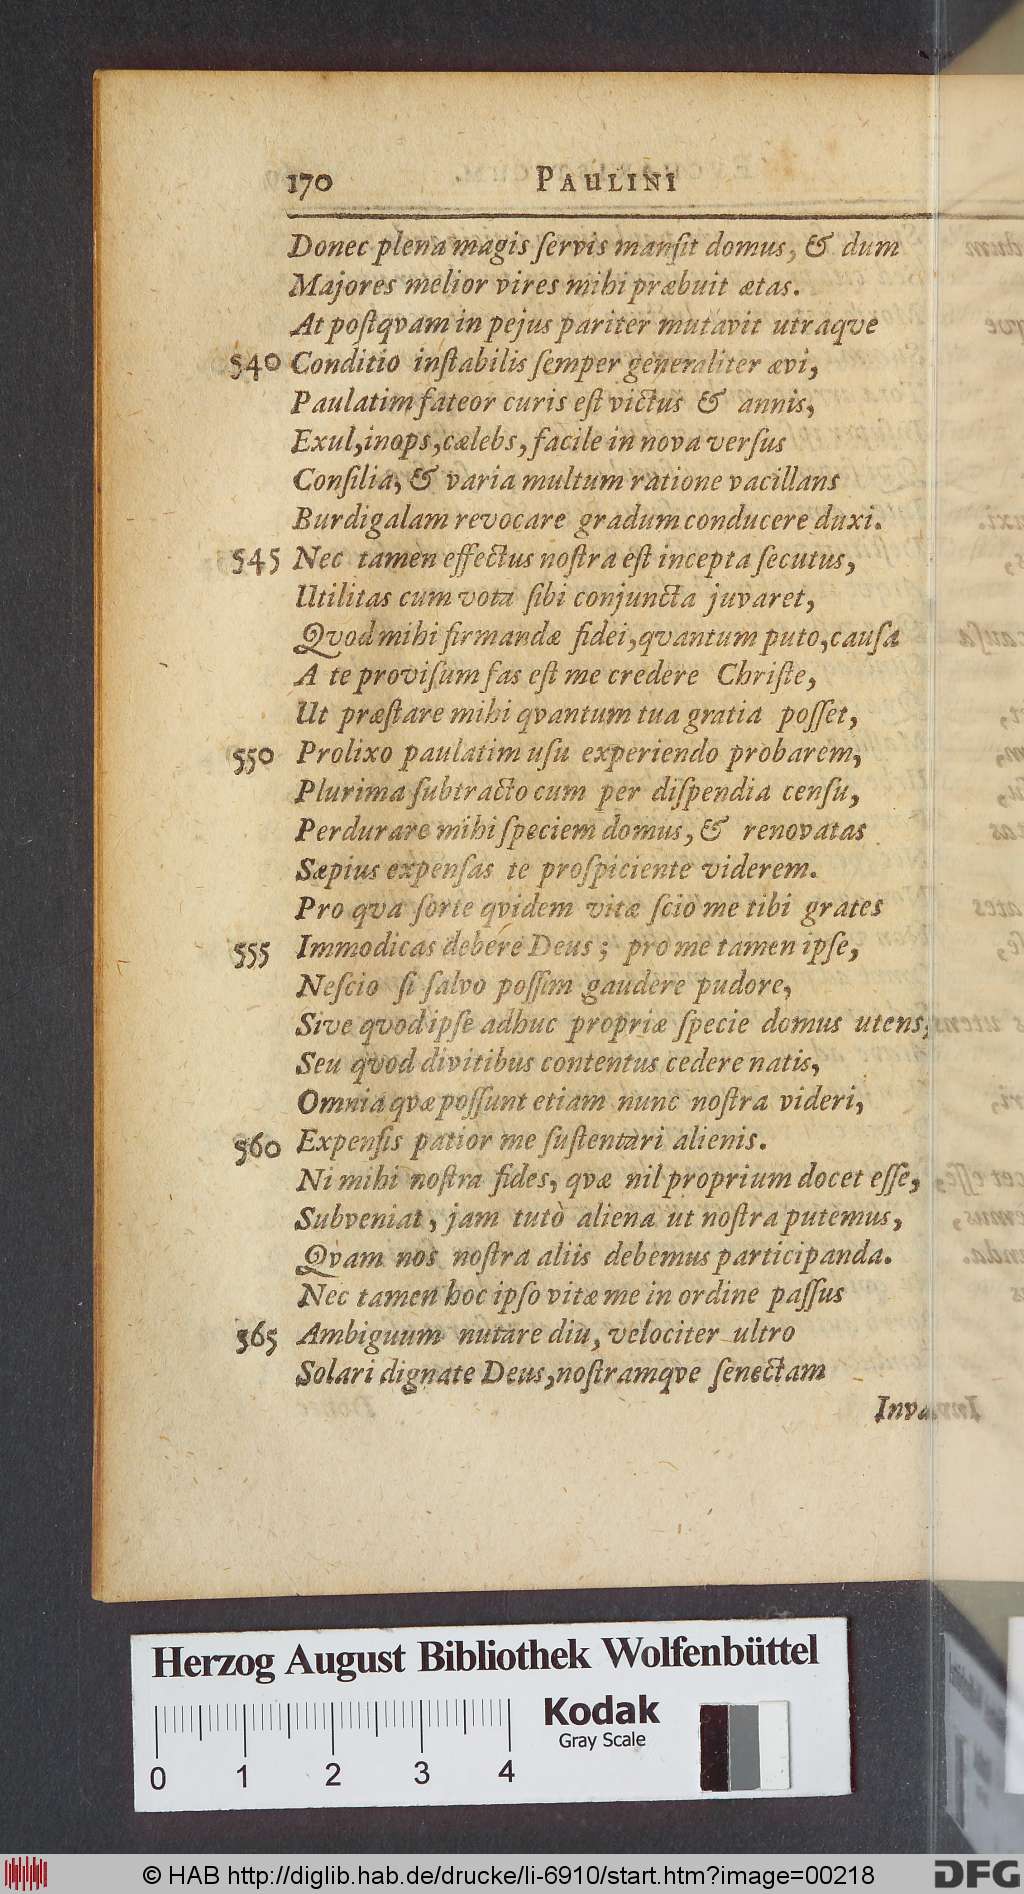 170 PAULINI
Donec plena magis ſervis manſit domus, & dum
Majores melior vires mihi præbuit ætas.
At poſtqvam in pejus pariter mutavit utraqve
540 Conditio inſtabilis ſemper generaliter ævi,
Paulatim fateor curis eſt victus & annis,
Exul, inops, cælebs, facile in nova verſus
Conſilia, & varia multum ratione vacillans
Burdigalam revocare gradum conducere duxi.
545 Nec tamen effectus noſtra eſt incepta ſecutus,
Utilitas cum vota ſibi conjuncta juvaret,
Qvod mihi firmandæ fidei, qvantum puto, cauſa
A te proviſum fas eſt me credere Chriſte,
Ut præſtare mihi qvantum tua gratia poſſet,
550 Prolixo paulatim uſu experiendo probarem,
Plurima ſubtracto cum per diſpendia cenſu,
Perdurare mihi ſpeciem domus, & renovatas
Sæpius expenſas te proſpiciente viderem.
Pro qva ſorte qvidem vitæ ſcio me tibi grates
555 Immodicas debere Deus; pro me tamen ipſe,
Neſcio ſi ſalvo poſſim gaudere pudore,
Sive qvod ipſe adhuc propriæ ſpecie domus utens,
Seu qvod divitibus contentus cedere natis,
Omnia qvæ poſſunt etiam nunc noſtra videri,
560 Expenſis patior me ſuſtentari alienis.
Ni mihi noſtra fides, qvæ nil proprium docet eſſe,
Subveniat, jam tutò aliena ut noſtra putemus,
Qvam nos noſtra aliis debemus participanda.
Nec tamen hoc ipſo vitæ me in ordine paſſus
565 Ambiguum nutare diu, velociter ultro
Solari dignate Deus, noſtramqve ſenectam
Inva-
Herzog August Bibliothek Wolfenbüttel
Kodak
Gray Scale
0 1 2 3 4
© HAB http://diglib.hab.de/drucke/li-6910/start.htm?image=00218
DFG